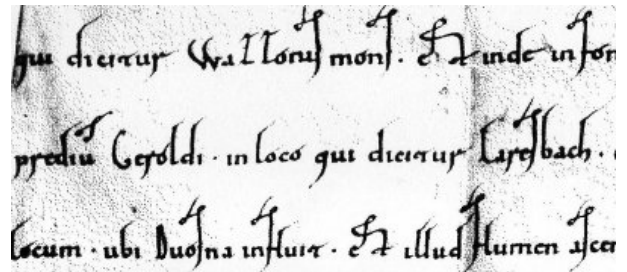 qui dicitur Wallonus mons. Et inde in fon
prediū Geroldi. in loco qui dicitur Laresbach.
locum. ubi Duosna influit. Et illud flumen ascen